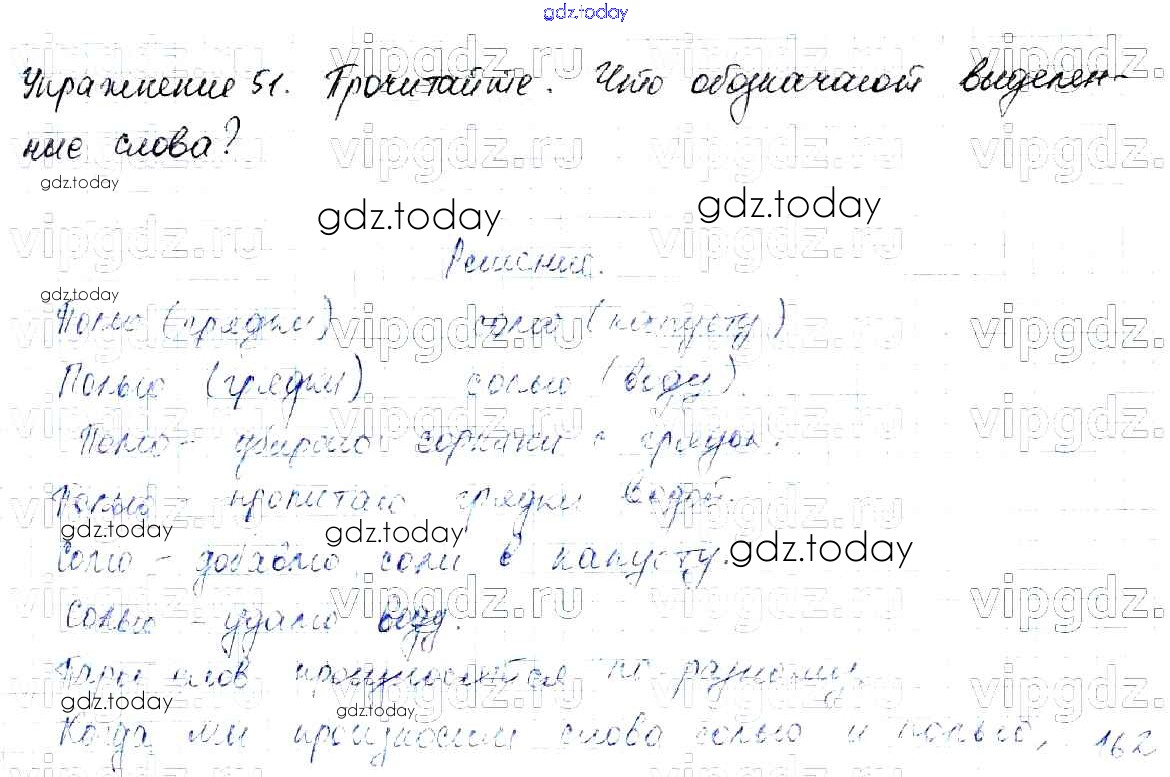 gdz.today
Упражнение 51. Прочитайте. Что обозначают выделен-
ные слова?
gdz.today
gdz.today gdz.today
Решение.
gdz.today
Полю (грядки) солю (капусту)
Полью (грядки) солью (воду).
Полю - убираю сорняки с грядок.
Полью - пропитаю грядки водой.
gdz.today gdz.today gdz.today
Солю - добавлю соли в капусту.
Солью - удалю воду.
Пары слов произносятся по-разному.
gdz.today gdz.today
Когда мы произносим слова солью и полью, 162